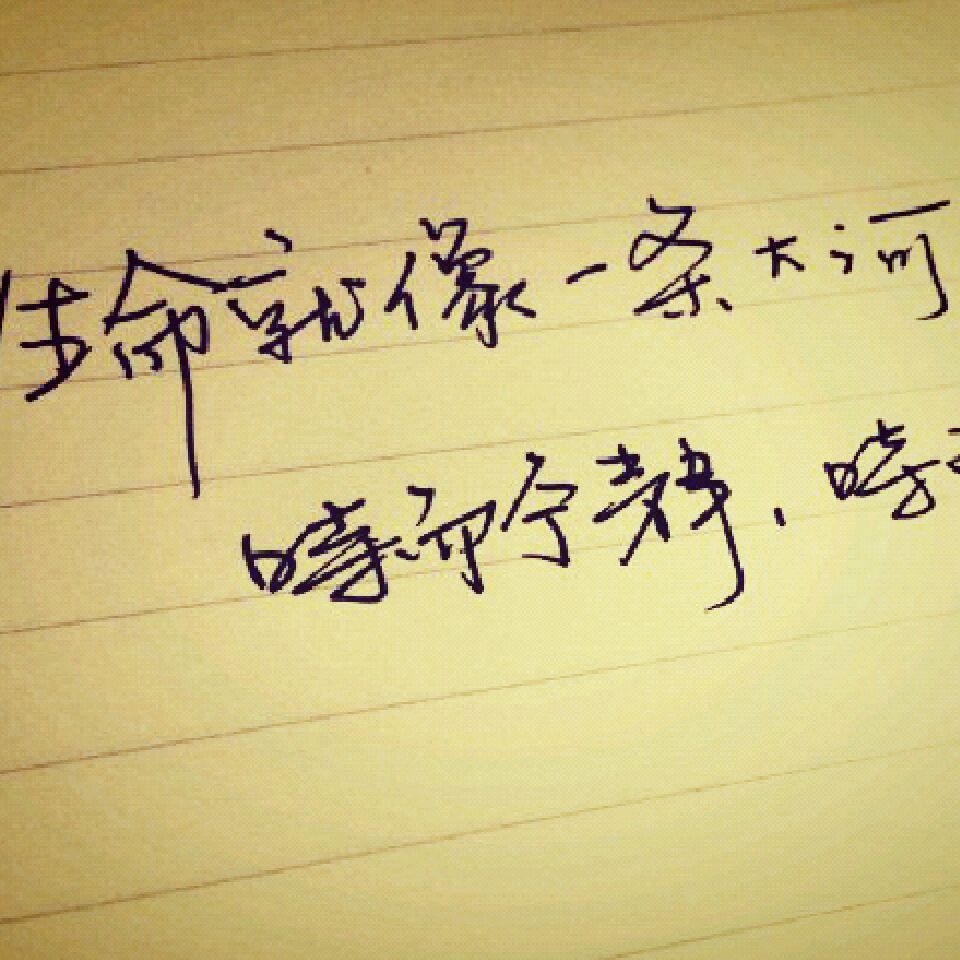 生命就像一条大河
時而宁静，時